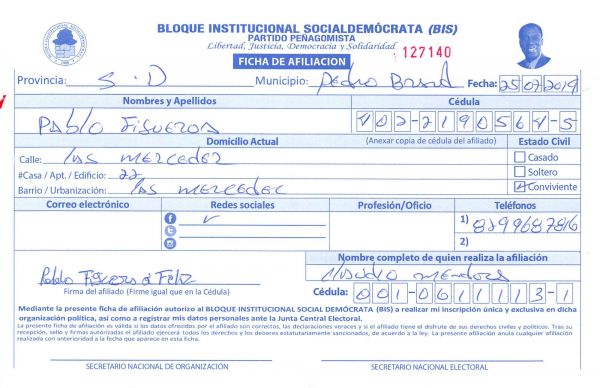 BLOQUE INSTITUCIONAL SOCIALDEMÓCRATA (BIS)
PARTIDO PEÑAGOMISTA
Libertad, Justicia, Democracia y Solidaridad
127140
FICHA DE AFILIACION
Provincia: S.D Municipio: Pedro Brand Fecha: 25 07 2019
Nombres y Apellidos Cédula
Pablo Figueroa 402-2190564-5
Domicilio Actual (Anexar copia de cédula del afiliado) Estado Civil
Calle: las mercedez Casado
#Casa / Apt. / Edificio: 22 Soltero
Barrio / Urbanización: las mercedez Conviviente
Correo electrónico Redes sociales Profesión/Oficio Teléfonos
1) 8299687816
2)
Nombre completo de quien realiza la afiliación
Pablo Figueroa Feliz Mendoza
Firma del afiliado (Firme igual que en la Cédula) Cédula: 001-0611113-1
Mediante la presente ficha de afiliación autorizo al BLOQUE INSTITUCIONAL SOCIAL DEMÓCRATA (BIS) a realizar mi inscripción única y exclusiva en dicha
organización política, así como a registrar mis datos personales ante la Junta Central Electoral.
La presente ficha de afiliación es válida si los datos ofrecidos por el afiliado son correctos, las declaraciones veraces y si el afiliado tiene el disfrute de sus derechos civiles y políticos. Tras su
recepción, sello y firmas autorizadas el afiliado ejercerá todos los derechos y los deberes estatutariamente sancionados, de acuerdo a la ley. La presente afiliación anula cualquier afiliación
realizada con anterioridad a la fecha que aparece en esta ficha.
SECRETARIO NACIONAL DE ORGANIZACIÓN SECRETARIO NACIONAL ELECTORAL